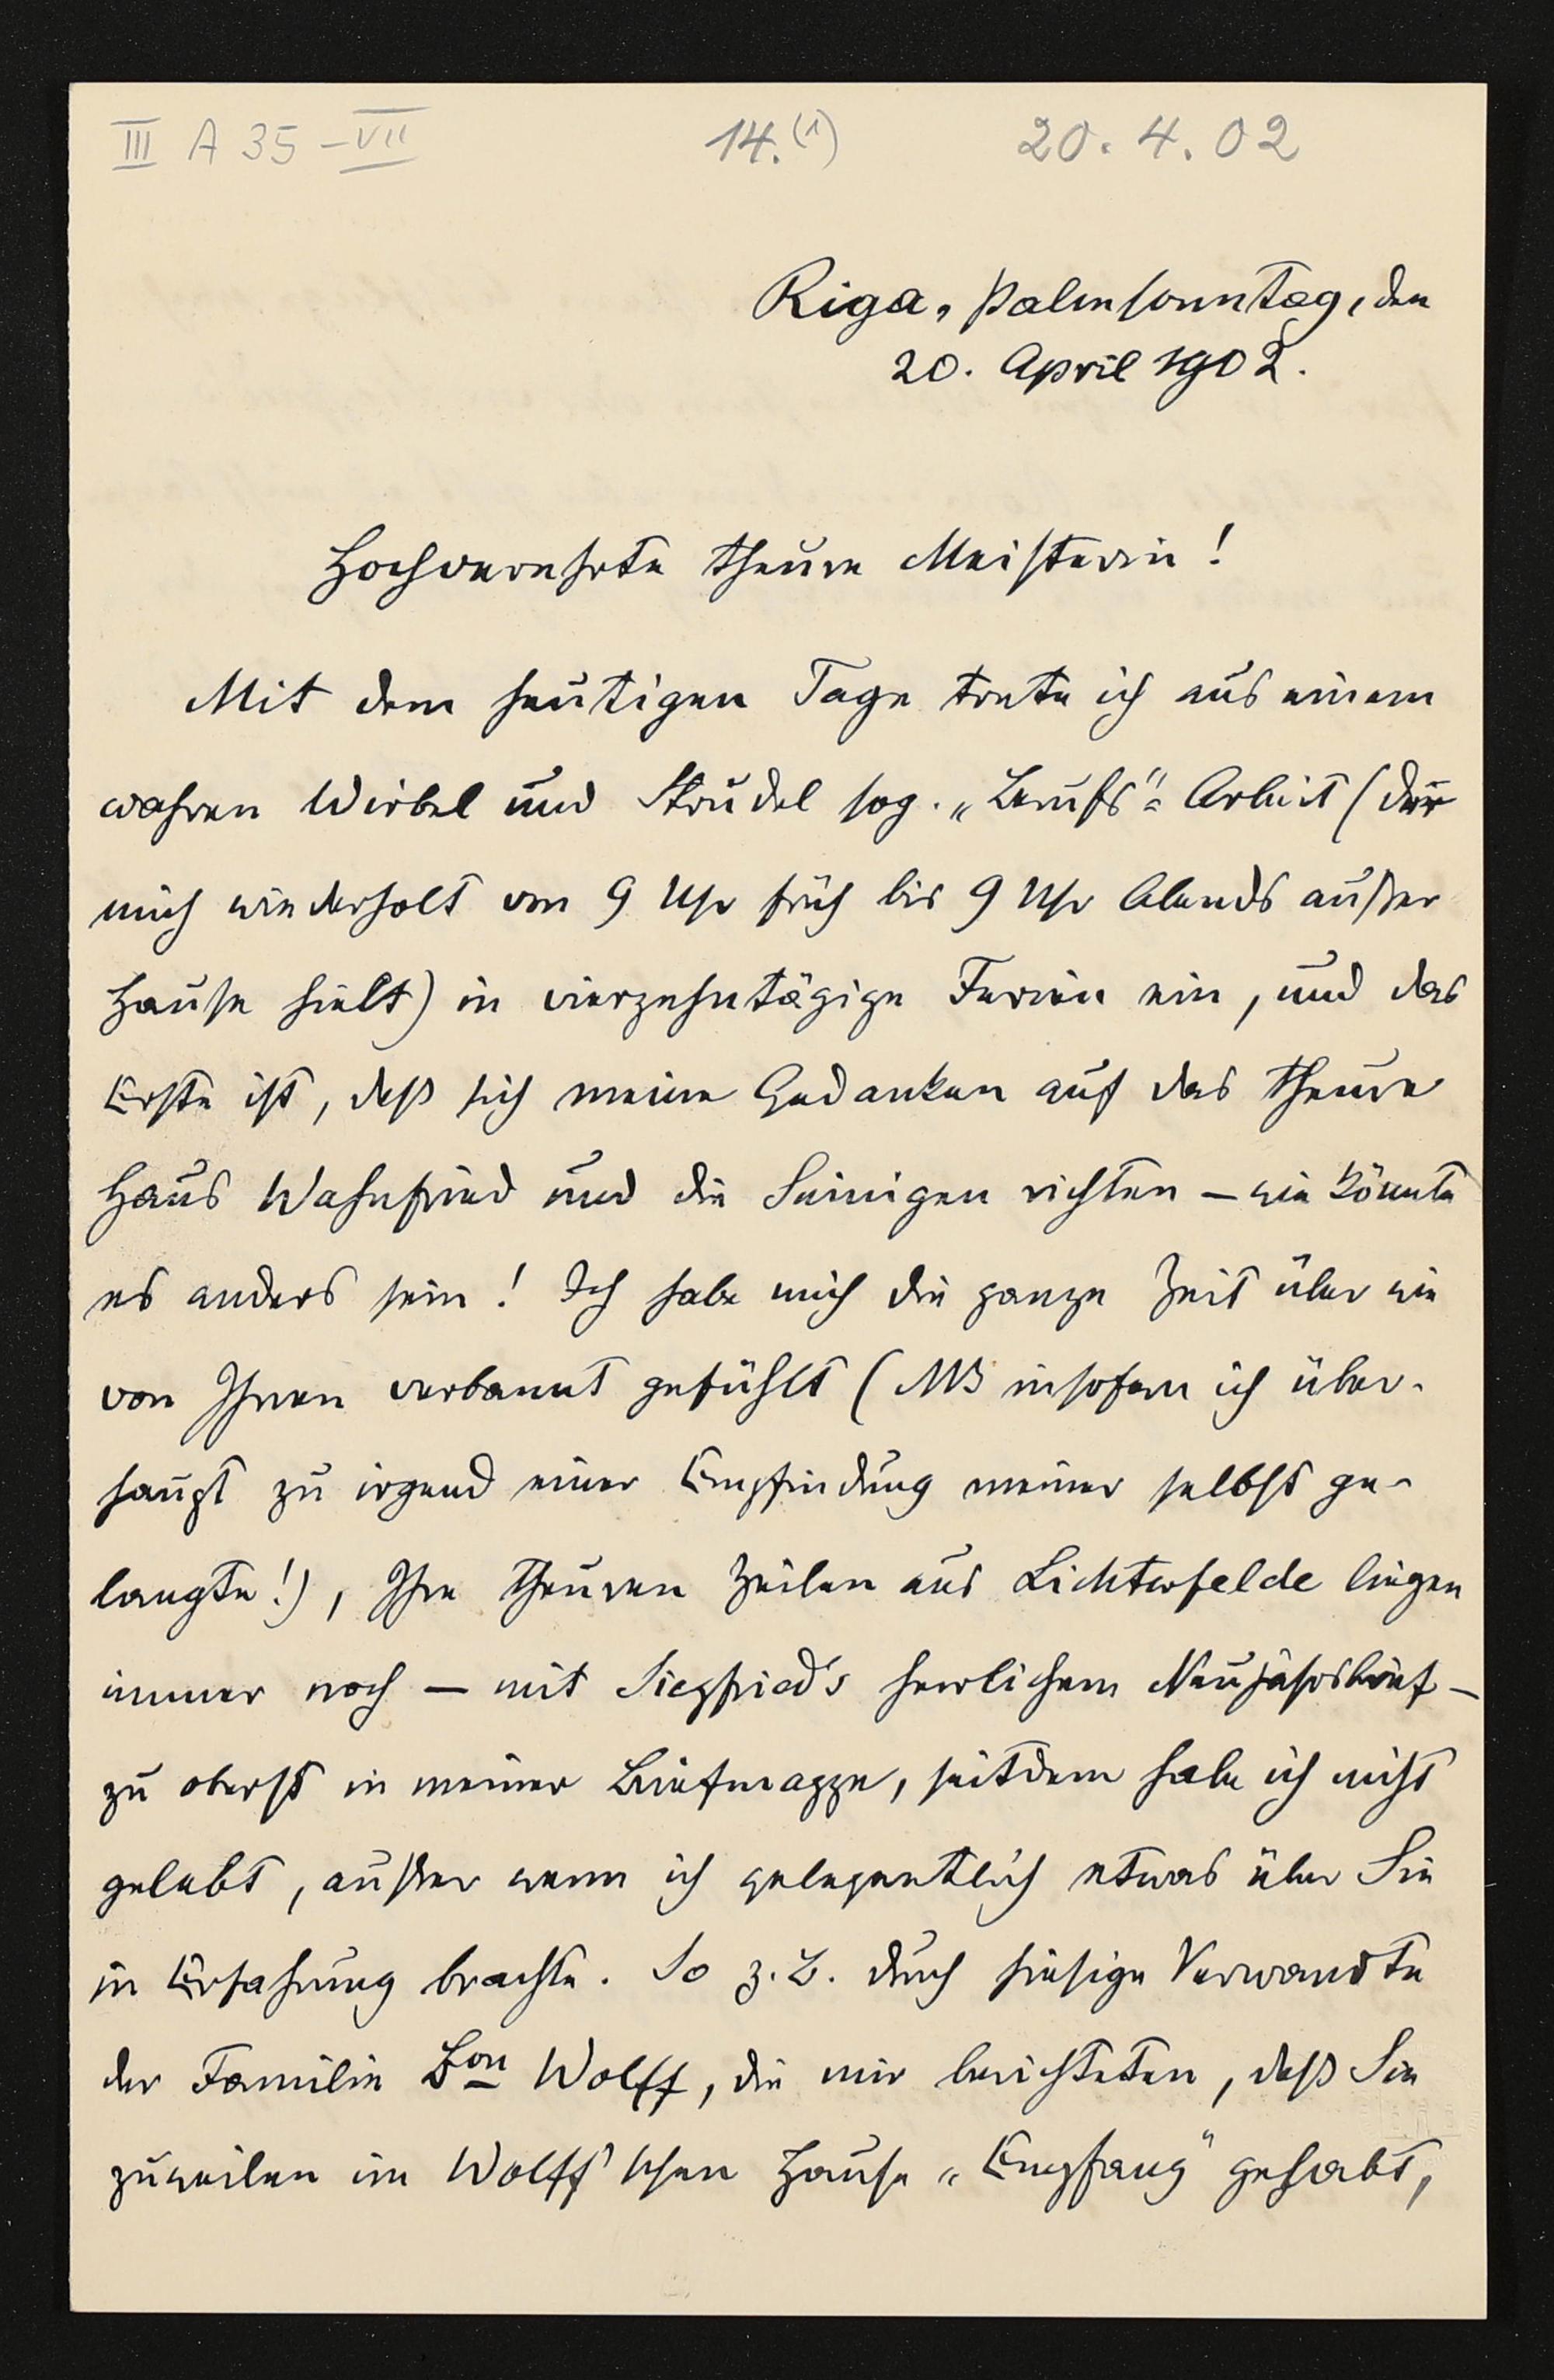 III A 35 - VII 14.(1) 20.4.02
Riga, Palmsonntag, den
20. April 1902.
Hochverehrte theure Meisterin!
Mit dem heutigen Tage trete ich aus einem
wahren Wirbel und Strudel sog. „Berufs"-Arbeit (der
mich wiederholt von 9 Uhr früh bis 9 Uhr Abends außer
Hause hielt) in vierzehntägige Ferien ein, und das
Erste ist, daß sich meine Gedanken auf das theure
Haus Wahnfried und die Seinigen richten – wie könnte
es anders sein! Ich habe mich die ganze Zeit über wie
von Ihnen verbannt gefühlt (NB insofern ich über-
haupt zu irgend einer Empfindung meiner selbst ge-
langte!), Ihre theuren Zeilen aus Lichterfelde liegen
immer noch – mit Siegfried's herrlichem Neujahrsbrief –
zu oberst in meiner Briefmappe, seitdem habe ich nicht
gelebt, außer wenn ich gelegentlich etwas über Sie
in Erfahrung brachte. So z.B. durch hiesige Verwandte
der Familie Bon Wolff, die mir berichteten, daß Sie
zuweilen im Wolff'schen Hause „Empfang" gehabt,